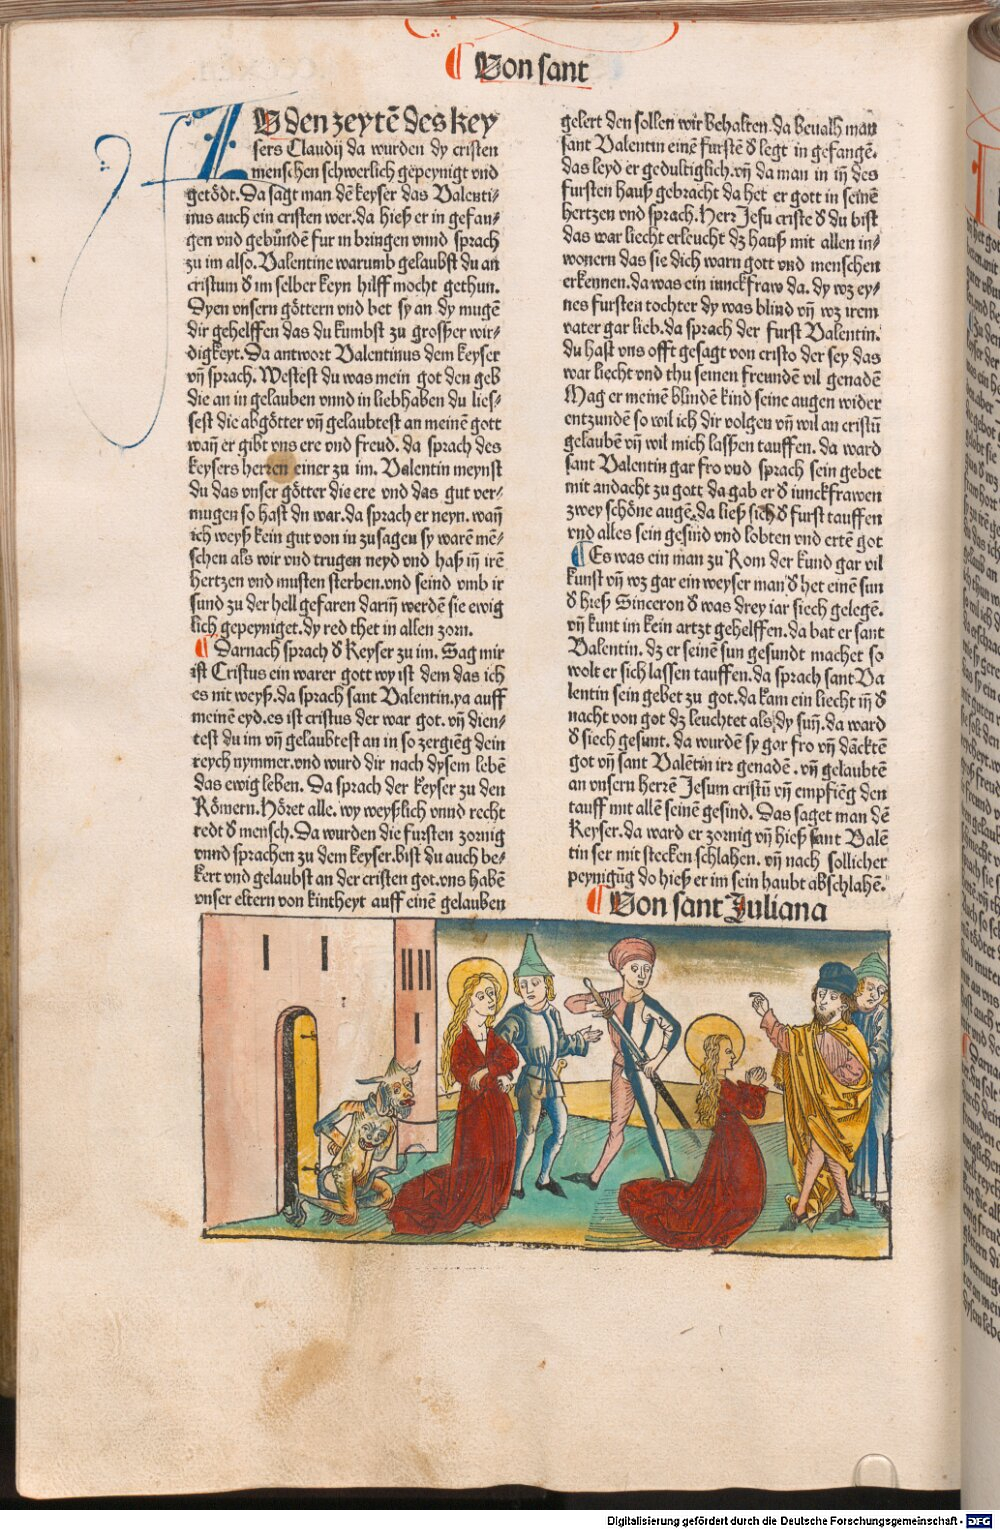 Von sant
AU den zeytē des key
sers Claudij da wurden dy cristen
menschen schwerlich gepeynigt vnd
getödt. Da sagt man dē keyser das Valenti⸗
nus auch ein cristen wer. da hieß er in gefan⸗
gen vnd gebundē fur in bringen vnnd sprach
zu im also. Valentine warumb gelaubst du an
cristum d im selber keyn hilff mocht gethun.
Dyen vnsern göttern vnd bet sy an dy mugē
dir gehelffen das du kumbst zu grosser wir⸗
digkeyt. Da antwort Valentinus dem keyser
vn̄ sprach. Westest du was mein got den geb
die an in gelauben vnnd in liebhaben du lies⸗
sest die abgötter vn̄ gelaubtest an meinē gott
wan̄ er gibt vns ere vnd freud. da sprach des
keysers herren einer zu im. Valentin meynst
du das vnser götter die ere vnd das gut ver⸗
mugen so hast du war. da sprach er neyn. wan̄
ich weyß kein gut von in zusagen sy warē mē⸗
schen als wir vnd trugen neyd vnd haß in̄ irē
hertzen vnd musten sterben. vnd seind vmb ir
sund zu der hell gefaren darin̄ werdē sie ewig
lich gepeyniget. dy red thet in allen zorn.
Darnach sprach d Keyser zu im. Sag mir
ist Cristus ein warer gott wy ist dem das ich
es nit weyß. da sprach sant Valentin. ya auff
meinē eyd. es ist cristus der war got. vn̄ dien⸗
test du im vn̄ gelaubtest an in so zergiēg dein
reych nymmer. vnd wurd dir nach dysem lebē
das ewig leben. Da sprach der keyser zu den
Römern. Höret alle. wy weyßlich vnnd recht
redt d mensch. Da wurden die fursten zornig
vnnd sprachen zu dem keyser. bist du auch be⸗
kert vnd gelaubst an der cristen got. vns habē
vnser eltern von kintheyt auff einē gelauben
gelert den sollen wir behalten. da beualh man
sant Valentin einē furstē d legt in gefangē.
das leyd er gedultiglich. vn̄ da man in in̄ des
fursten hauß gebracht da het er gott in seinē
hertzen vnd sprach. Herr Jesu criste d du bist
das war liecht erleucht dz hauß mit allen in⸗
wonern das sie dich warn gott vnd menschen
erkennen. da was ein iunckfraw da. dy wz ey⸗
nes fursten tochter dy was blind vn̄ wz irem
vater gar lieb. da sprach der furst Valentin.
du hast vns offt gesagt von cristo der sey das
war liecht vnd thu seinen freundē vil genadē
Mag er meinē blindē kind seine augen wider
entzundē so wil ich dir volgen vn̄ wil an cristū
gelaubē vn̄ wil mich lasßen tauffen. da ward
sant Valentin gar fro vnd sprach sein gebet
mit andacht zu gott da gab er d iunckfrawen
zwey schöne augē. da ließ sich d furst tauffen
vnd alles sein gesind vnd lobten vnd ertē got
Es was ein man zu Rom der kund gar vil
kunst vn̄ wz gar ein weyser man d het einē sun
d hieß Sinceron d was drey iar siech gelegē.
vn̄ kunt im kein artzt gehelffen. da bat er sant
Valentin. dz er seinē sun gesundt machet so
wolt er sich lassen tauffen. da sprach sant Va
lentin sein gebet zu got. da kam ein liecht in̄ d
nacht von got dz leuchtet als dy sun̄. da ward
d siech gesunt. da wurdē sy gar fro vn̄ dācktē
got vn̄ sant Valētin irr genadē. vn̄ gelaubtē
an vnsern herrē Jesum cristū vn̄ empfiēg den
tauff mit allē seinē gesind. Das saget man dē
Keyser. da ward er zornig vn̄ hieß sant Valē
tin ser mit stecken schlahen. vn̄ nach sollicher
peynigūg do hieß er im sein haubt abschlahē.
Von sant Juliana
Digitalisierung gefördert durch die Deutsche Forschungsgemeinschaft - DFG